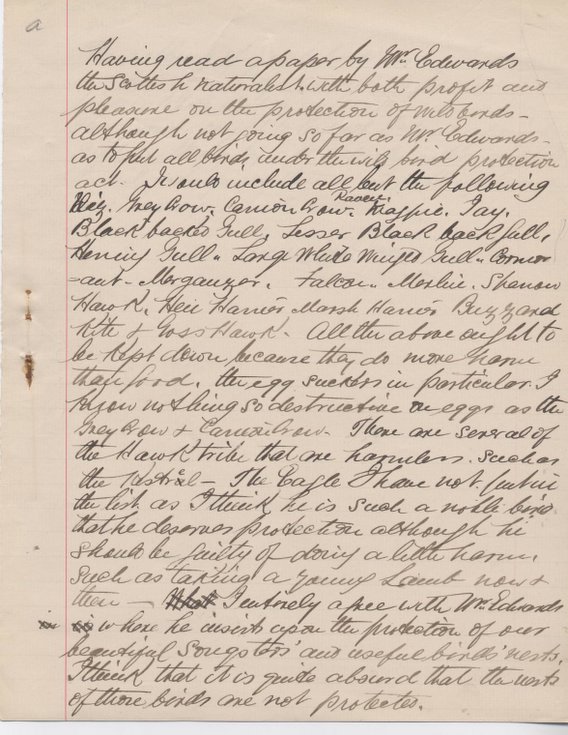 a
Having read a paper by Mr. Edwards
the Scottish naturalist with both profit and
pleasure on the protection of wild birds -
although not going so far as Mr. Edwards -
as to put all birds under the wild bird protection
act. I would include all but the following
Viz, Grey Crow. Carrion Crow. Raven. Magpie. Jay.
Black backed Gull, Lesser Black back gull,
Herring Gull - Large White Winged Gull - Cormor
-ant - Merganzer. Falcon - Merlin. Sparrow
Hawk. Hen Harrier Marsh Harrier Buzzard
Kite & Goss Hawk - All the above ought to
be kept down because they do more harm
than good. the egg suckers in particular. I
know nothing so destructive on eggs as the
Grey Crow & Carrion Crow - There are several of
the Hawk tribe that are harmless. such as
the Kestrel - The Eagle I have not put in
the list as I think he is such a noble bird
that he deserves protection although he
should be guilty of doing a little harm.
such as taking a young Lamb now &
then - I entirely agree with Mr. Edwards
where he insists upon the protection of our
beautiful Songsters' and useful birds' nests.
I think that it is quite absurd that the nests
of those birds are not protected.